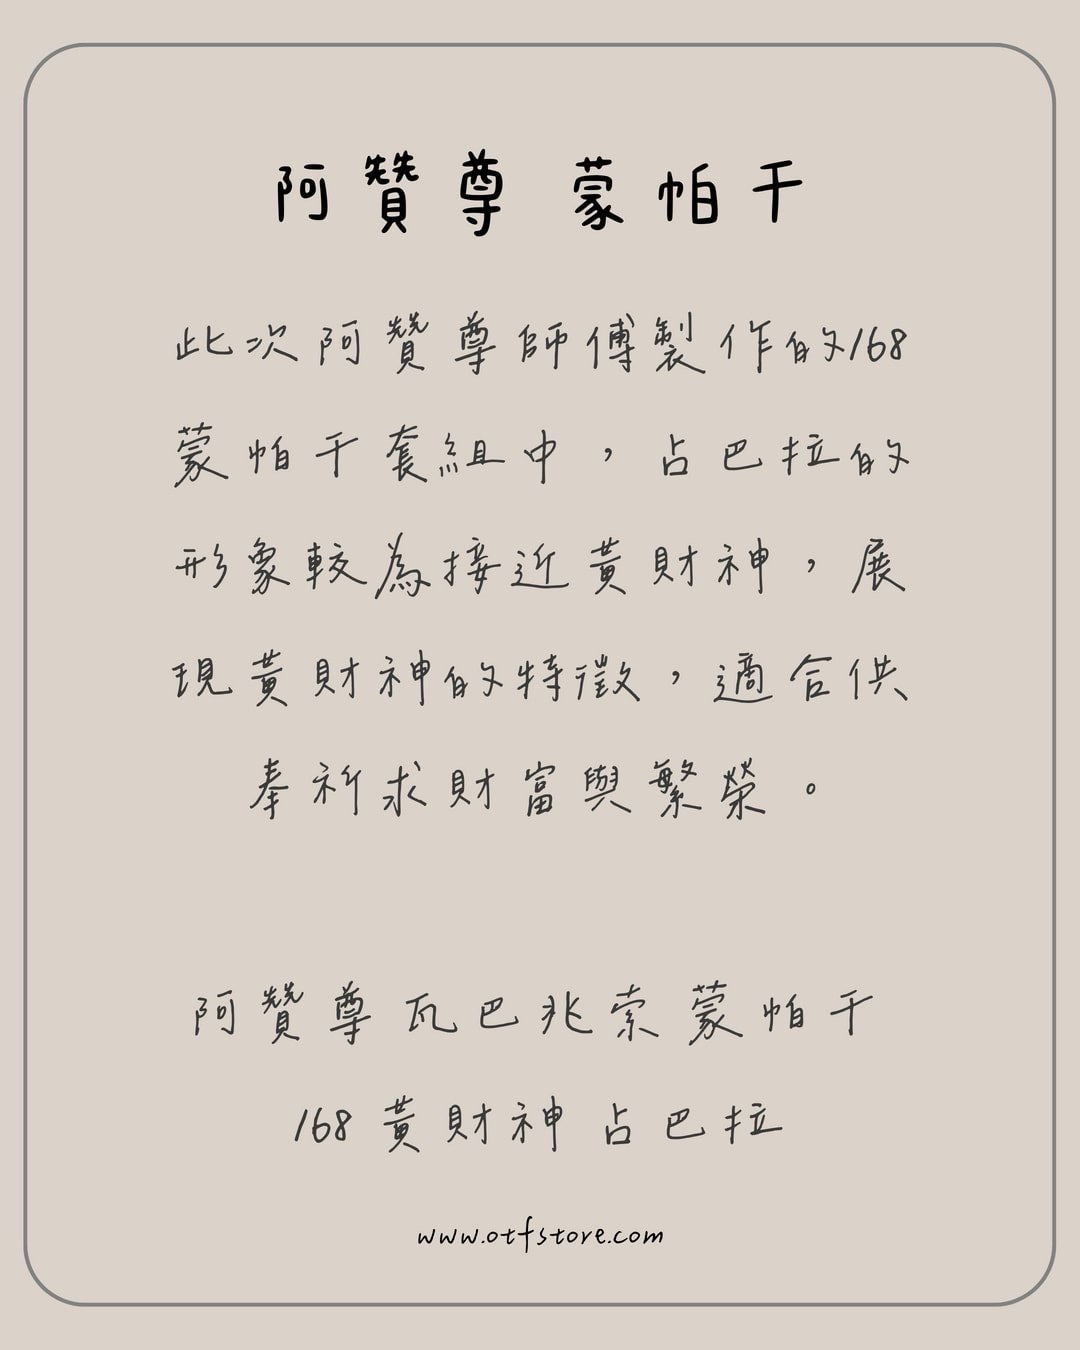 阿贊尊 蒙帕干
此次阿贊尊師傅製作的168
蒙帕干套組中，占巴拉的
形象較為接近黃財神，展
現黃財神的特徵，適合供
奉祈求財富與繁榮。
阿贊尊瓦巴兆索蒙帕干
168 黃財神 占巴拉
www.otfstore.com